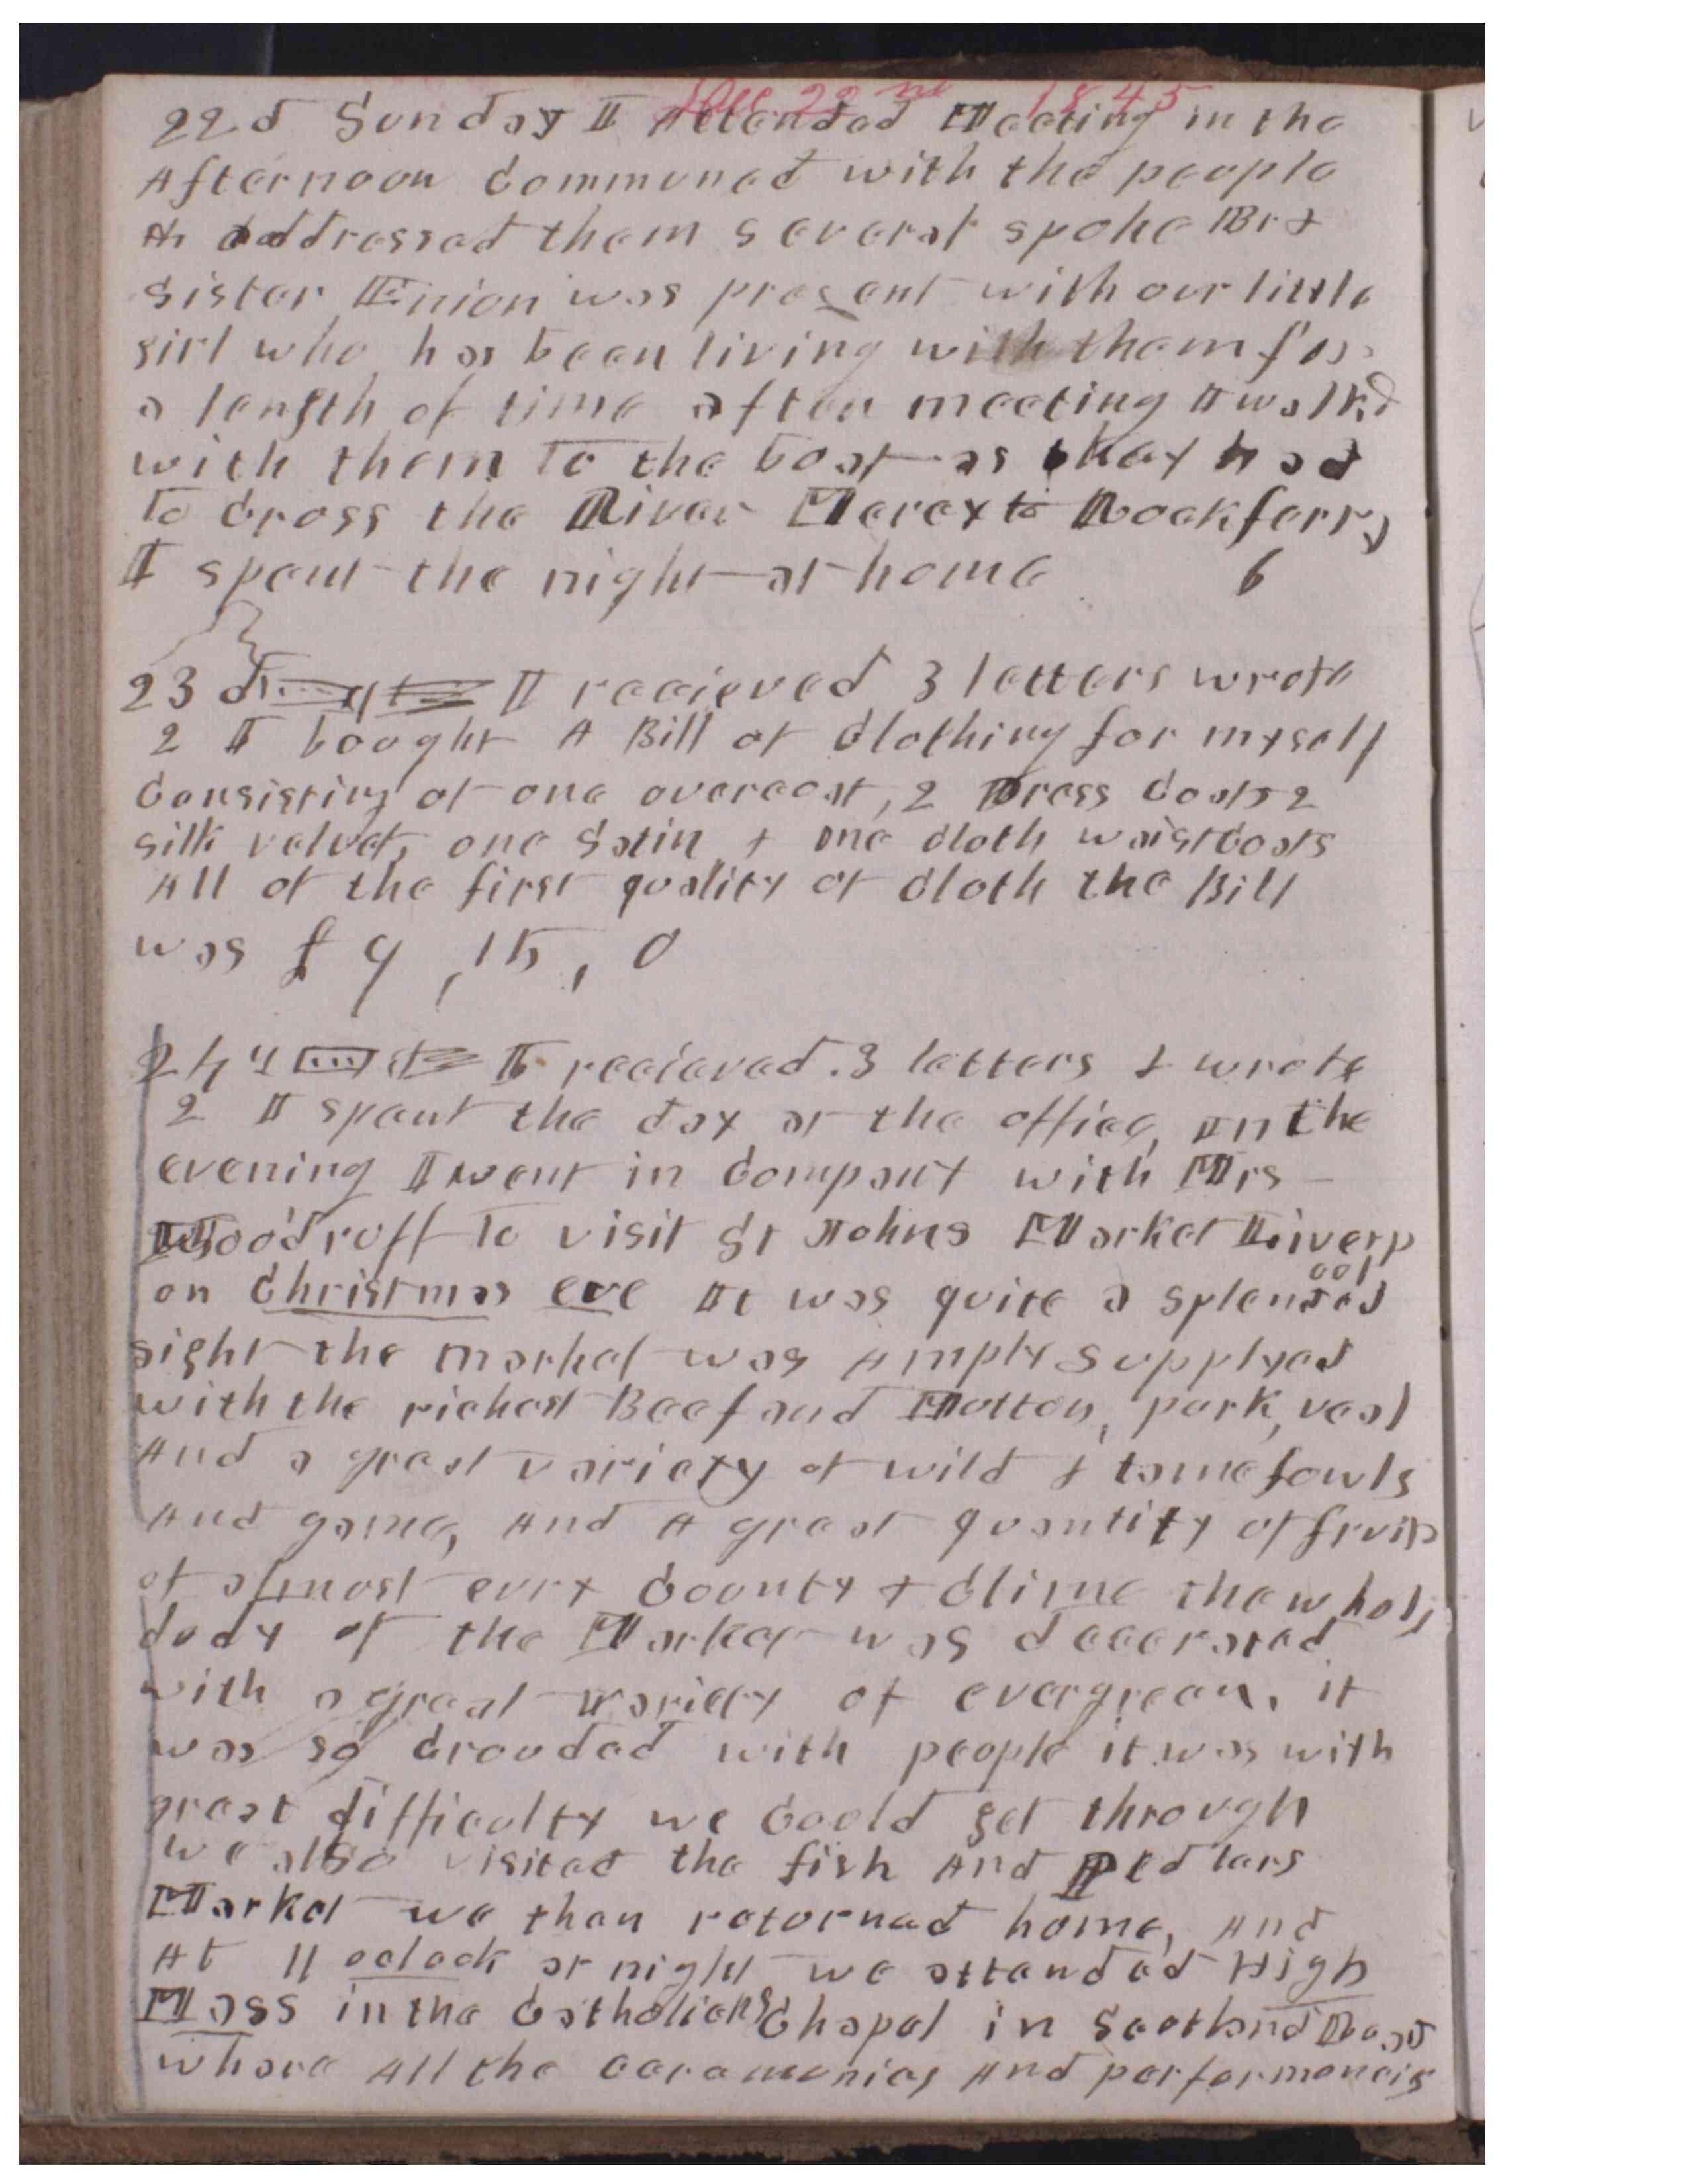 Dec 22nd 1845
22d Sunday I Attended Meeting in the
Afternoon Communed with the people
& addressed them several spoke Br &
Sister Enion was present with our little
girl who has been living with them for
a length of time after meeting I walkd
with them to the boat as they had
to Cross the River Mercy to Rockferry
I spent the night at home 6
23d I recieved 3 letters wrote
2 I bought A Bill of Clothing for myself
Consisting of one overcoat, 2 Dress Coats 2
silk velvet, one Satin & one cloth waistCoats
All of the first quality of cloth the Bill
was £9,15,0
24th I recieved 3 letters & wrote
2 I spent the day at the office, In the
evening I went in Company with Mrs
Woodruff to visit St Johns Market Liverp
ool
on Christmas eve It was quite a splended
sight the market was Amply Supplyed
with the richest Beef and Mutton, pork, veal
And a great variety of wild & tame fowls
And game, And A great quantity of fruit
of almost evry County & Clime the whole
body of the Market was decorated
with a great variety of evergreen, it
was so Crouded with people it was with
great difficulty we Could get through
we also visited the fish And pedlars
Market we then returned home, And
At 11 oclock at night we attended High
Mass in the Catholicks Chapel in Scotland Road
where All the ceremonies And performances